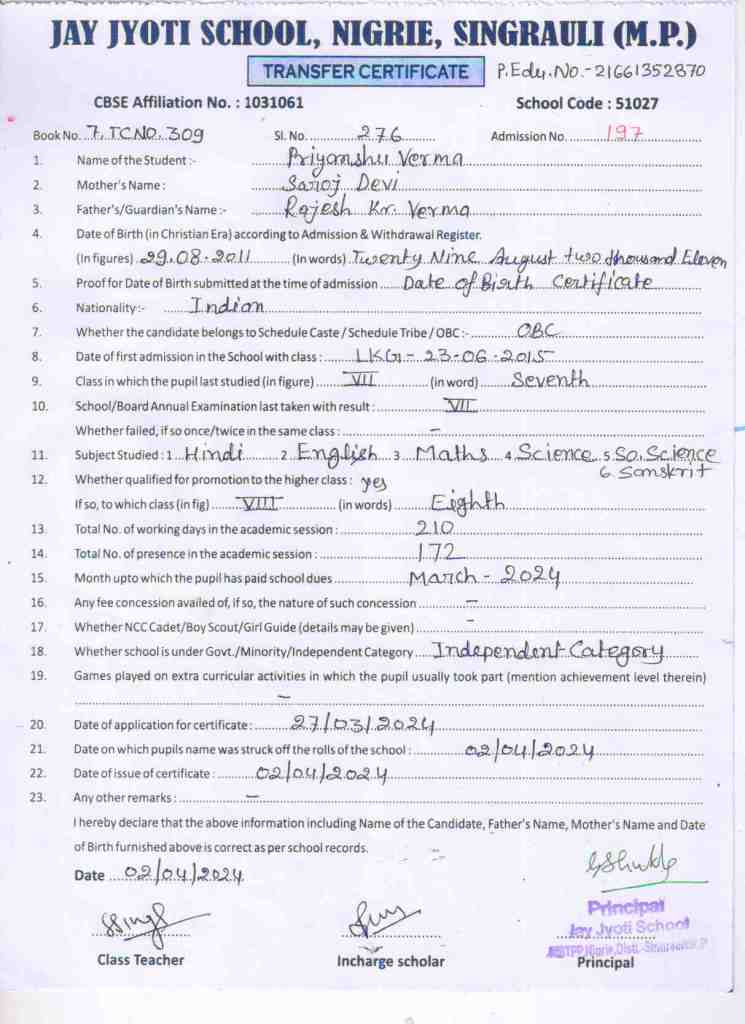 JAY JYOTI SCHOOL, NIGRIE, SINGRAULI (M.P.)
TRANSFER CERTIFICATE P.Edu.No.-21661352870
CBSE Affiliation No. : 1031061 School Code : 51027
Book No. 7, TC NO. 309 Sl. No. 276 Admission No. 197
1. Name of the Student :- Priyanshu Verma
2. Mother's Name : Saroj Devi
3. Father's/Guardian's Name :- Rajesh Kr. Verma
4. Date of Birth (in Christian Era) according to Admission & Withdrawal Register.
(In figures) 29.08.2011 (In words) Twenty Nine August two thousand Eleven
5. Proof for Date of Birth submitted at the time of admission Date of Birth Certificate
6. Nationality:- Indian
7. Whether the candidate belongs to Schedule Caste / Schedule Tribe / OBC :- OBC
8. Date of first admission in the School with class : LKG - 23-06-2015
9. Class in which the pupil last studied (in figure) VII (in word) Seventh
10. School/Board Annual Examination last taken with result : VII
Whether failed, if so once/twice in the same class : –
11. Subject Studied : 1 Hindi 2 English 3 Maths 4 Science 5 So. Science
6. Sanskrit
12. Whether qualified for promotion to the higher class : yes
If so, to which class (in fig) VIII (in words) Eighth
13. Total No. of working days in the academic session : 210
14. Total No. of presence in the academic session : 172
15. Month upto which the pupil has paid school dues March - 2024
16. Any fee concession availed of, if so, the nature of such concession –
17. Whether NCC Cadet/Boy Scout/Girl Guide (details may be given) –
18. Whether school is under Govt./Minority/Independent Category Independent Category
19. Games played on extra curricular activities in which the pupil usually took part (mention achievement level therein)
–
20. Date of application for certificate : 27/03/2024
21. Date on which pupils name was struck off the rolls of the school : 02/04/2024
22. Date of issue of certificate : 02/04/2024
23. Any other remarks : –
I hereby declare that the above information including Name of the Candidate, Father's Name, Mother's Name and Date
of Birth furnished above is correct as per school records.
Date 02/04/2024
Principal
Jay Jyoti School
Class Teacher Incharge scholar Principal